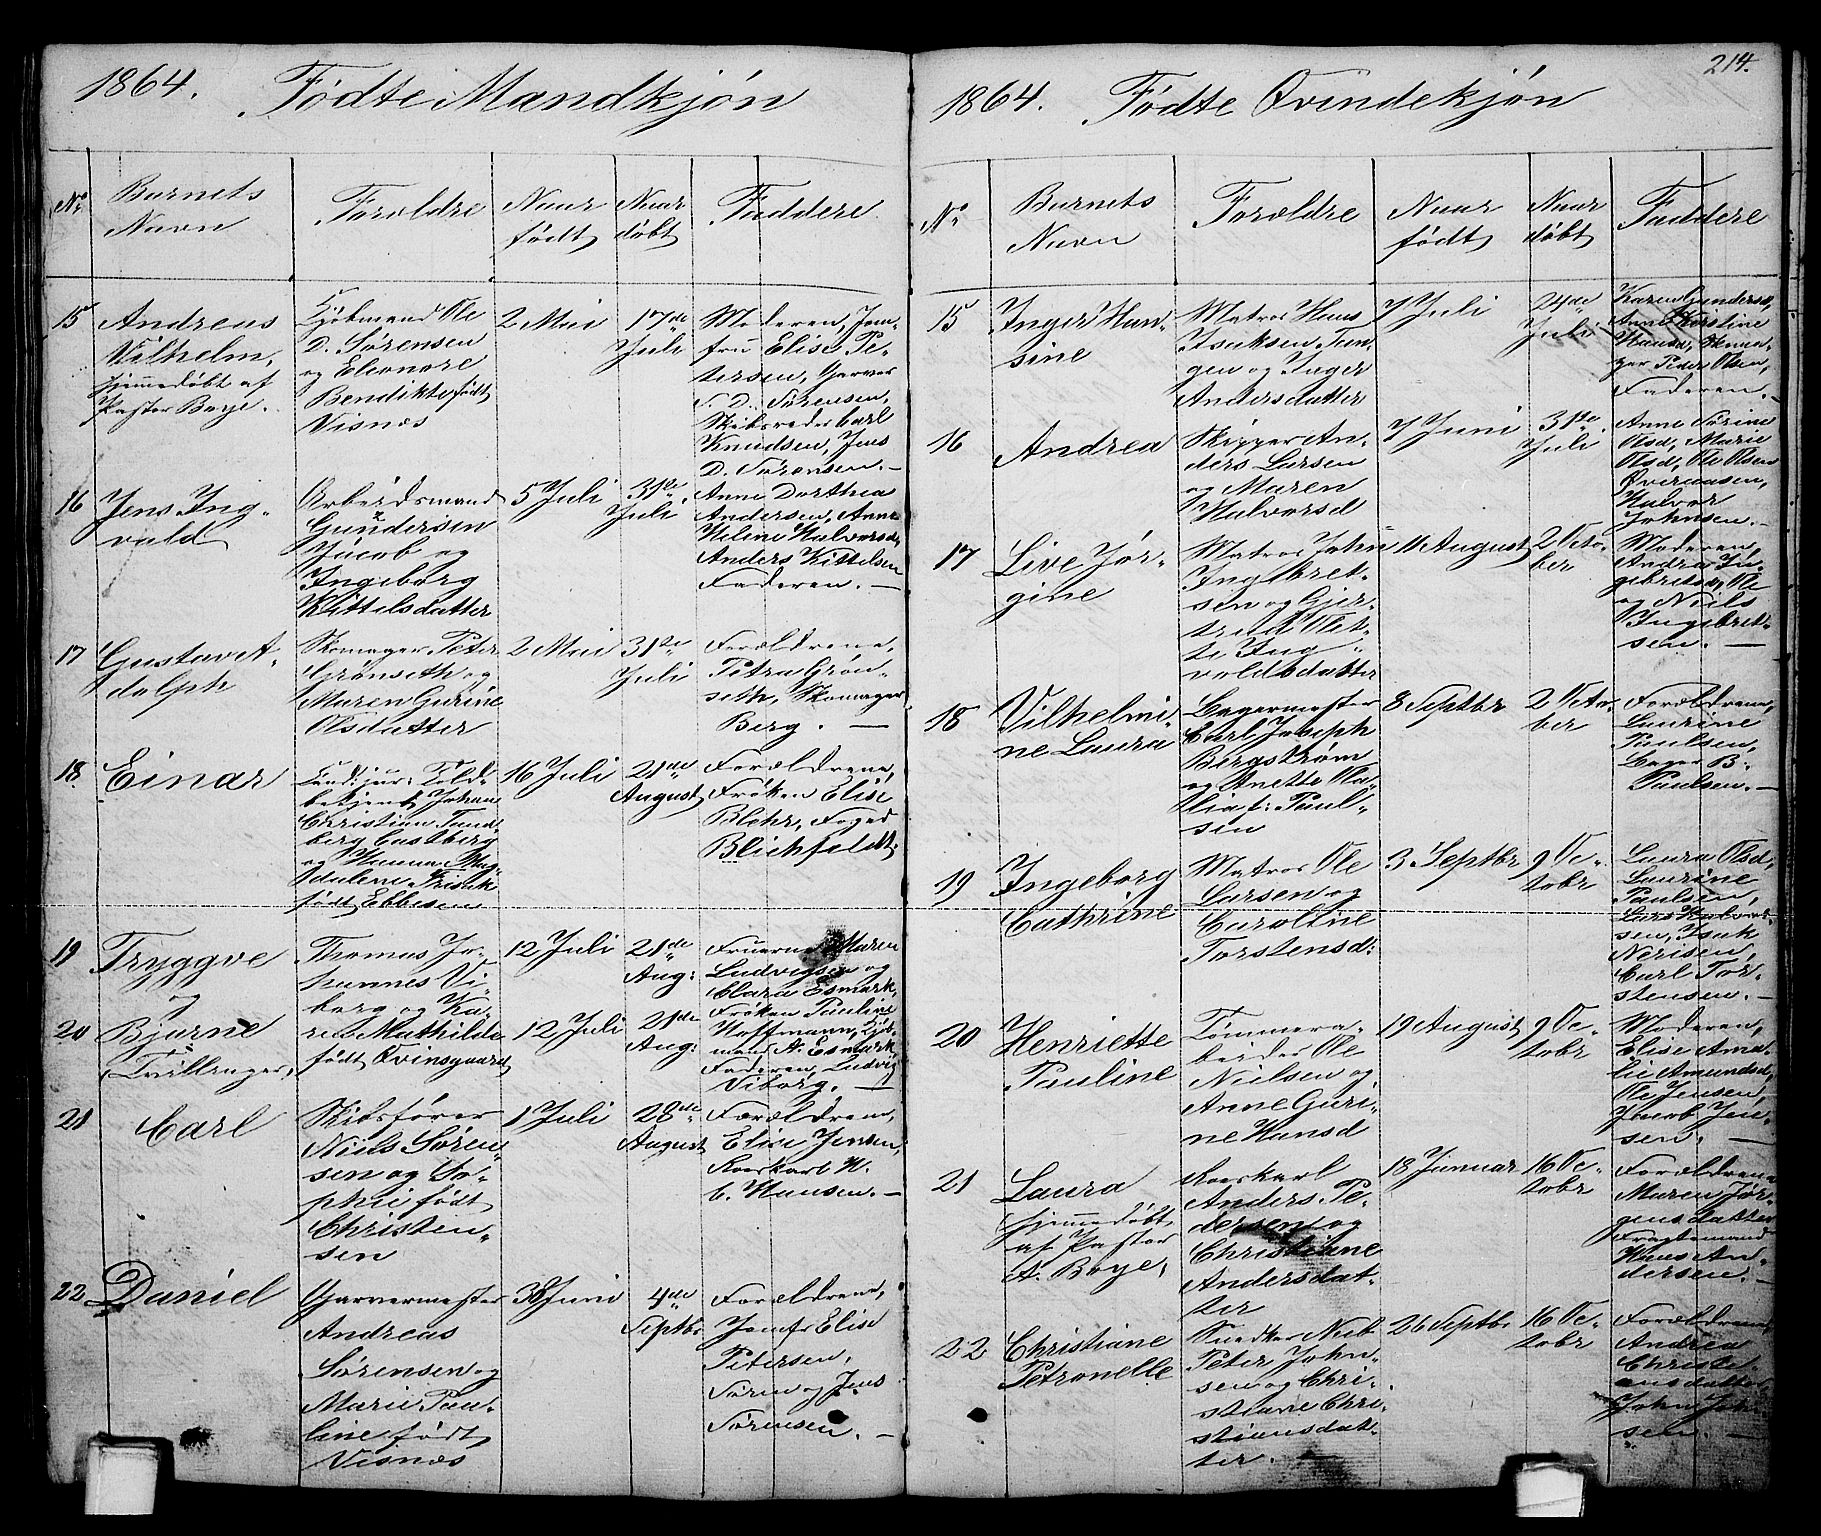 1864. Födte Mandkjön
No
Barnets
Navn
Forældre
Naar
födt
Naar
döbt
Faddere
15
Andreas
Vilhelm,
hjemmedöbt af
Pastor Boye.
Kjöbmand Ole
D. Sørensen
og Eleonore
Bendikte födt
Visnæs
2 Mai
17de
Juli
Moderen, Jom-
fru Elise Pe-
tersen, Garver
S. D. Sørensen,
Skibsreder Carl
Knudsen, Jens
D. Sørensen. —
16
Jens Ing-
vald
Arbeidsmand
Gundersen
Jacob og
Ingeborg
Kittelsdatter
5 Juli
31te
Juli
Anne Dorthea
Andersen, Anne
Heline Halvorsd,
Anders Kittelsen
Faderen. —
17
Gustav A-
dolph
Skomager Peter
Grønseth og
Maren Gurine
Olsdatter
2 Mai
31te
Juli
Forældrene,
Petra Grøn-
seth, Skomager
Berg. —
18
Einar
Cand: jur: Told-
betjent Johan
Christian Tand-
berg Castberg
og Hanna Mag-
dalene Frisak
födt Ebbesen
16 Juli
21de
August
Forældrene,
Frøken Elise
Blehr, Foged
Blichfeldt.
19
Tryggve
og
20
Bjarne
(Tvillinger)
Thomas Jo-
hannes Vi-
borg og Ka-
ren Mathilde
födt Qvinsgaard
12 Juli
21de
Aug:
12 Juli
21de
Aug:
Fruerne Maren
Ludvigsen og
Clara Esmark,
Frøken Pauline
Hoffmann, Kjøb-
mand A. Esmark
Faderen, Ludvig
Viborg. —
21
Carl
Skibsfører
Niels Søren-
sen og So-
phie födt
Christen-
sen
1 Juli
28de
August
Forældrene,
Elise Jensen,
Kaarkarl H.
C. Hansen. —
22
Daniel
Garvermester
Andreas
Sørensen og
Marie Pau-
line födt
Visnæs
Juni
4de
Septbr
Forældrene,
Jomfr Elise
Petersen,
Søren og Jens
Sørensen. —
214.
1864. Födte Qvindekjön
No
Barnets
Navn
Forældre
Naar
födt
Naar
döbt
Faddere
15
Inger Han-
sine
Matros Hans
Isaksen Tan-
gen og Inger
Andersdatter
7 Juli
24de
Juli
Karen Gundersd,
Anne Kirstine
Hansd,
Peder Olsen,
Faderen. —
16
Andrea
Skipper An-
ders Larsen
og Maren
Halvorsd
7 Juni
31te
Juli
Anne Sørine
Olsd, Marie
Olsd, Ole Olsen
Øveraasen,
Halvor
Johnsen. —
17
Live Jør-
gine
Matros John
Ingebret-
sen og Gjer-
trude Olet-
te Ing-
valdsdatter
11 August
2 Octo-
ber
Moderen,
Andrea In-
gebretsd, Ole
og Niels
Ingebret-
sen. —
18
Vilhelmi-
ne Laura
Bagermester
Carl Joseph
Bergstrøm
og Anette Ola-
lia f: Paul-
sen
8 Septbr
2 Octo-
ber
Forældrene,
Laurine
Paulsen,
Bager B.
Paulsen. —
19
Ingeborg
Cathrine
Matros Ole
Larsen og
Caroline
Torstensd:
3 Septbr
9 Oc-
tobr
Laura Olsd,
Laurine
Paulsen,
Lars Halvor-
sen, Isak
Nerisen,
Carl Tor-
stensen. —
20
Henriette
Pauline
Tømmera-
beider Ole
Nielsen og
Anne Guri-
ne Hansd
19 August
9 Oc-
tobr
Moderen,
Elise Ama-
lie Amundsd,
Ole Jensen,
Jacob Jen-
sen. —
21
Laura
hjemmedöbt
af Pastor
A. Boye,
Kaarkarl
Anders Pe-
dersen og
Christiane
Andersdat-
ter
18 Januar
16 Oc-
tobr
Forældrene
Maren Jør-
gensdatter
Fragtemand
Hans An-
dersen. —
22
Christiane
Petronelle
Snedker Niels
Peter John-
sen og Chri-
stiane Chri-
stiansdat-
ter. —
26 Septbr
16 Oc-
tobr
Forældrene
Andrea
Christi-
ansdatter
John Joh-
sen. —